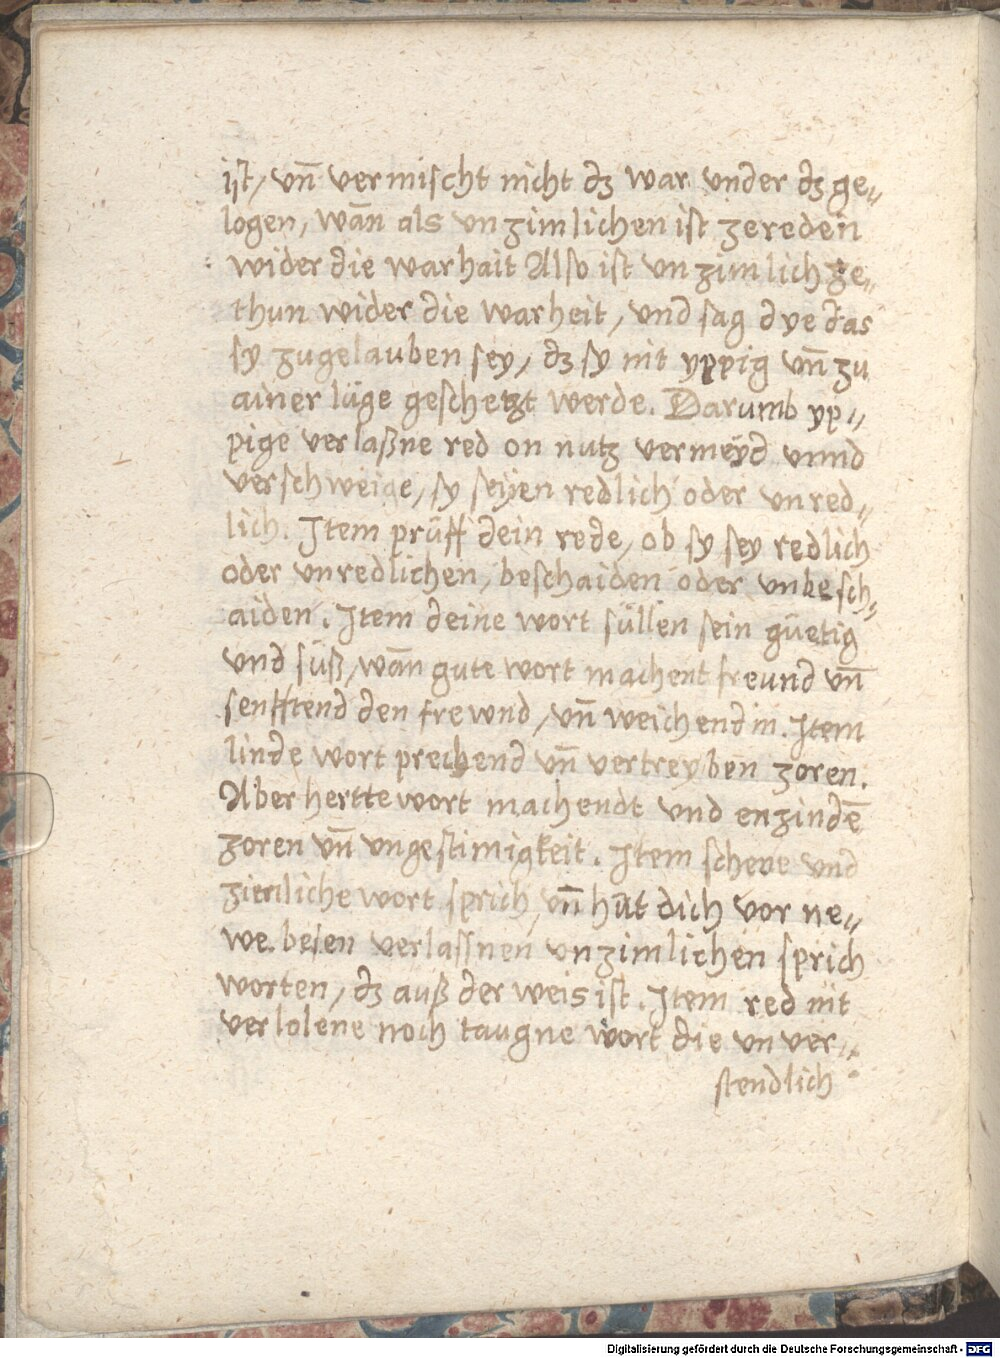 ist, vn̄ vermischt nicht dʒ war vnder dʒ ge„
logen, wān als vnzimlichen ist zereden
wider die warhait Also ist vnzimlich ze„
thun wider die warheit, vnd sag dye das
sy zugelauben sey, dʒ sy nit yppig vn̄ zu
ainer lüge geschetzt werde. Darumb yp„
pige verlaßne red on nutz vermeÿd vnnd
verschweige, sy seÿen redlich oder vnred„
lich. Item prüff dein rede, ob sy sey redlich
oder vnredlichen, beschaiden oder vnbesch„
aiden. Item deine wort süllen sein güetig
vnd süß, wān gute wort machent freund vn̄
senfftend den frewnd, vn̄ weichend in. Item
linde wort prechend vn̄ vertreyben zoren.
Aber hertte wort machendt vnd enzindē
zoren vn̄ vngestimigkeit. Item schene vnd
zienliche wort sprich, vn̄ hüt dich vor ne„
we. besen verlassnen vnzimlichen sprich
worten, dʒ auß der weis ist. Item red nit
verlolene noch taugne wort die vnver„
stendlich
Digitalisierung gefördert durch die Deutsche Forschungsgemeinschaft - DFG